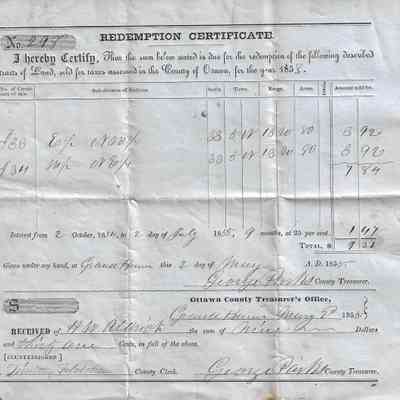 No. 297
REDEMPTION CERTIFICATE.
I hereby Certify, That the sum below stated is due for the redemption of the following described
Tracts of Land, sold for taxes assessed in the County of Ottawa, for the year 1853.
No. of Certificate of Sale. Sub-division of Section. Sect'n Town. Range. Acres. Amount sold for.
33 5 N 13 W 80 3 92
33 5 N 13 W 80 3 92
7 84
Interest from 2 October, 1854, to 2 day of July 1855, 9 months, at 25 per cent. 1 47
TOTAL, $ 9 31
Given under my hand, at Grand Haven this 2 day of A. D. 1855
George Parks County Treasurer.
Ottawa County Treasurer's Office,
Grand Haven 1855
RECEIVED of H W Aldrich the sum of Nine Dollars
and thirty one Cents, in full of the above.
[COUNTERSIGNED]
County Clerk. George Parks County Treasurer.